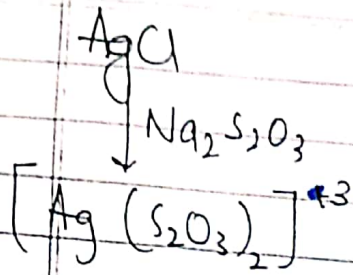 AgCl
Na₂S₂O₃
[Ag(S₂O₃)₂]⁺³